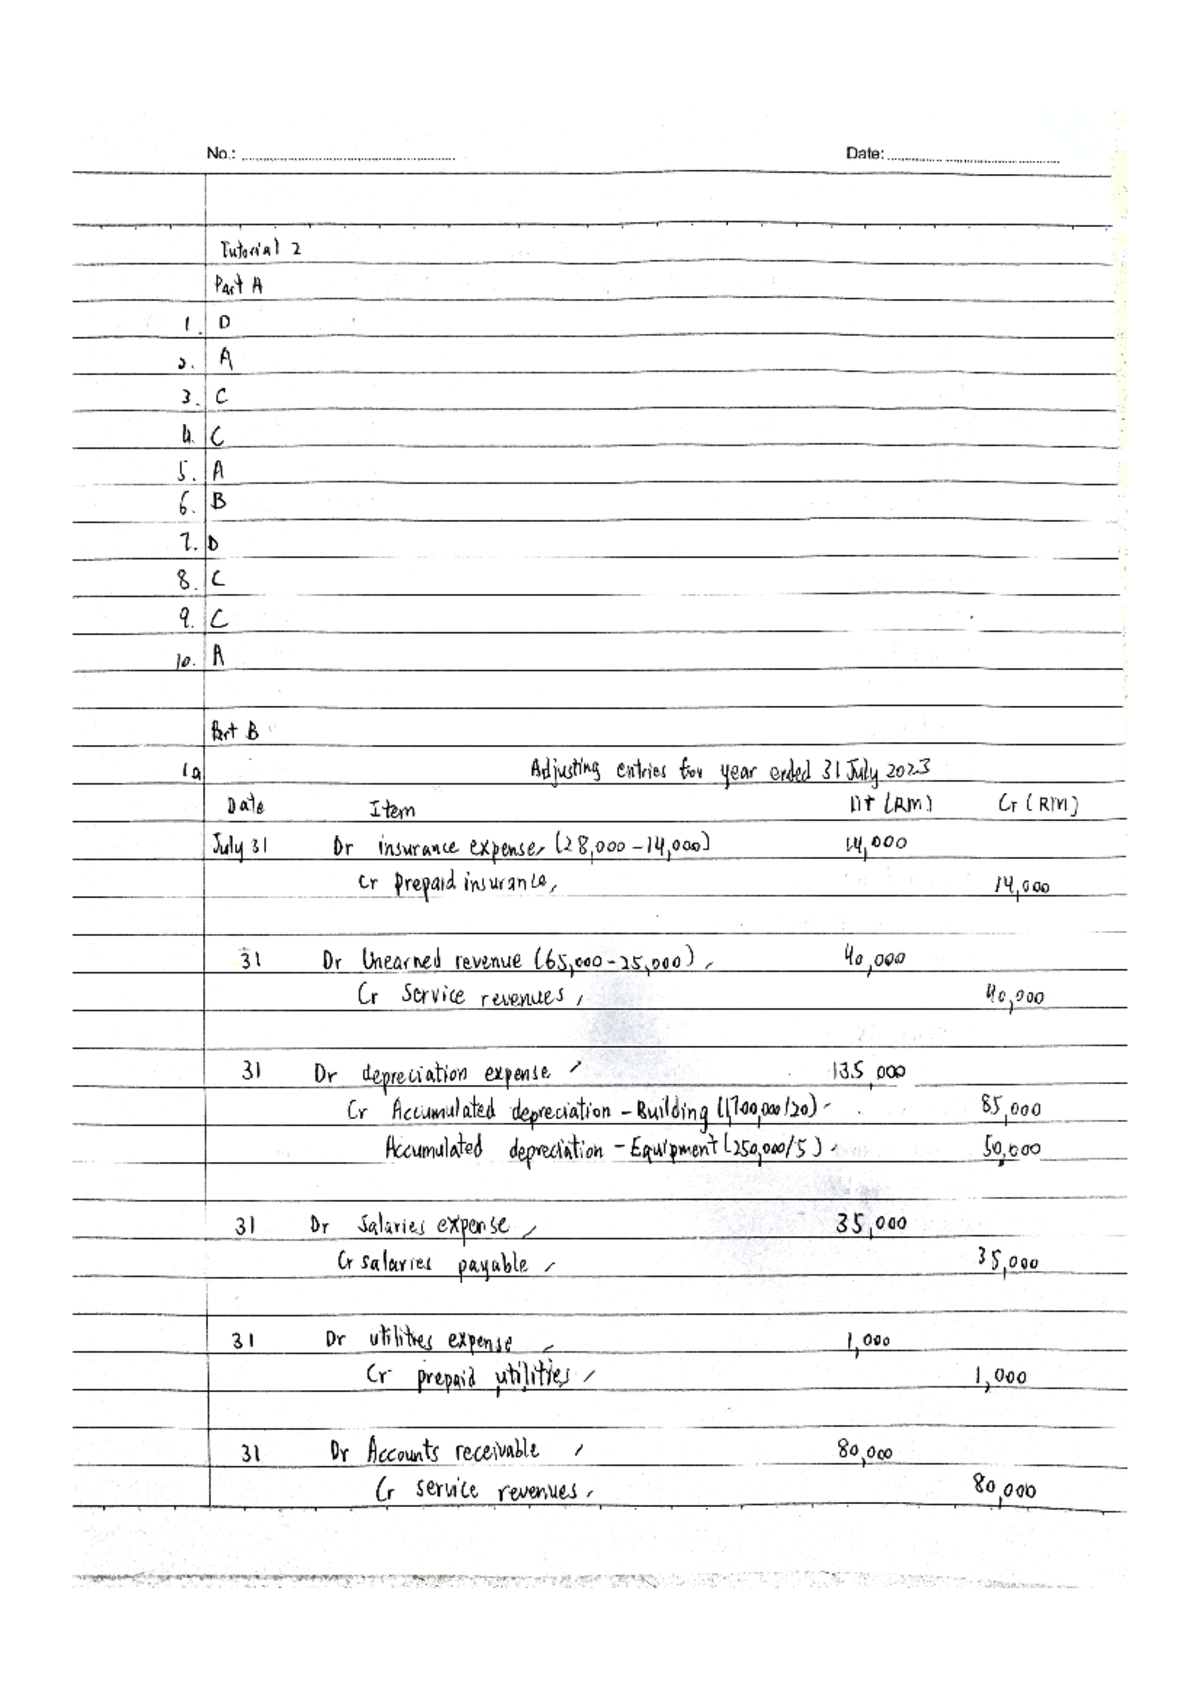 No.: Date:
Tutorial 2
Part A
1. D
2. A
3. C
4. C
5. A
6. B
7. D
8. C
9. C
10. A
Part B
1a Adjusting entries for year ended 31 July 2023
Date Item Dr (RM) Cr (RM)
July 31 Dr insurance expense, (28,000 - 14,000) 14,000
Cr Prepaid insurance, 14,000
31 Dr Unearned revenue (65,000 - 25,000) 40,000
Cr Service revenues 40,000
31 Dr depreciation expense 135,000
Cr Accumulated depreciation - Building (1,700,000/20) 85,000
Accumulated depreciation - Equipment (250,000/5) 50,000
31 Dr Salaries expense 35,000
Cr salaries payable 35,000
31 Dr utilities expense 1,000
Cr prepaid utilities 1,000
31 Dr Accounts receivable 80,000
Cr service revenues 80,000